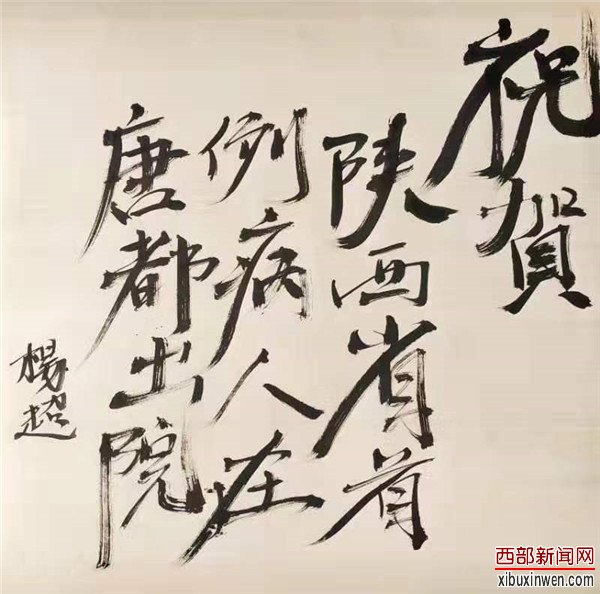 祝賀
陕西省首
例病人在
唐都出院
楊超
西部新闻网
xibuxinwen.com